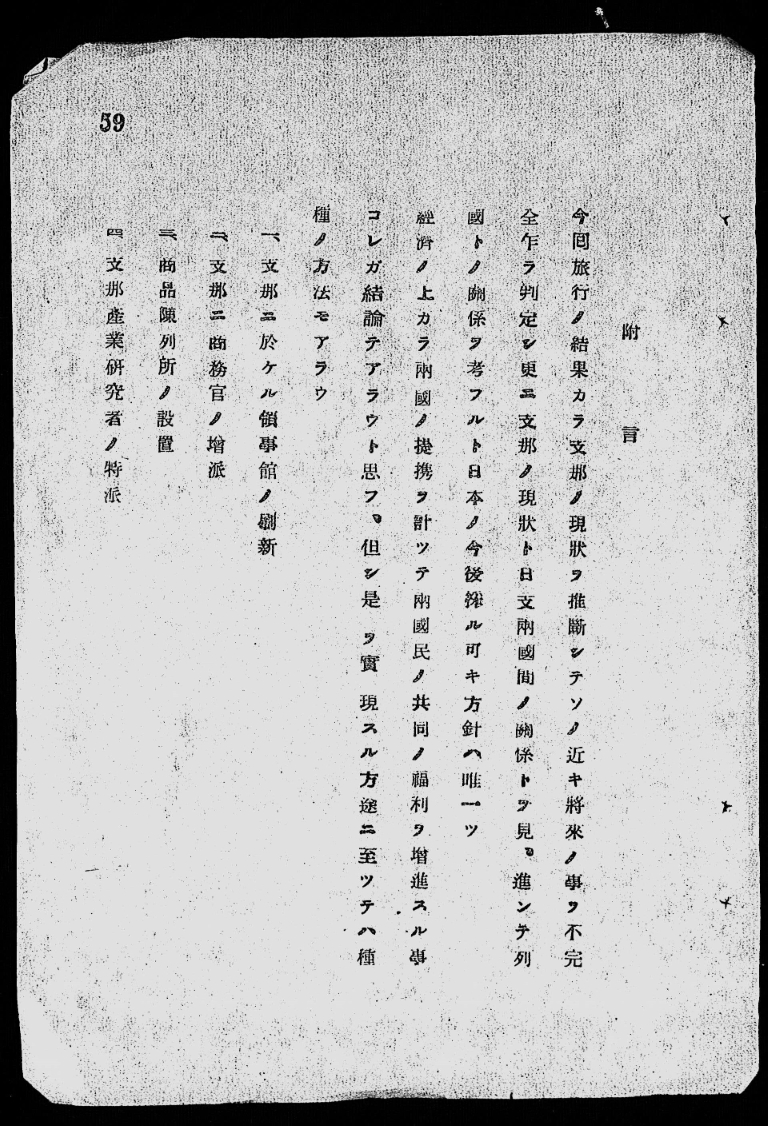 59
附言
今囘旅行ノ結果カラ支那ノ現狀ヲ推斷シテソノ近キ將來ノ事ヲ不完
全乍ラ判定シ更ニ支那ノ現狀ト日支兩國間ノ關係トヲ見、進ンテ列
國トノ關係ヲ考フルト日本ノ今後採ル可キ方針ハ唯一ツ
經濟ノ上カラ兩國ノ提携ヲ計ツテ兩國民ノ共同ノ福利ヲ增進スル事
コレガ結論テアラウト思フ。但シ是ヲ實現スル方途ニ至ツテハ種
種ノ方法モアラウ
一、支那ニ於ケル領事館ノ刷新
二、支那ニ商務官ノ增派
三、商品陳列所ノ設置
四、支那產業硏究者ノ特派